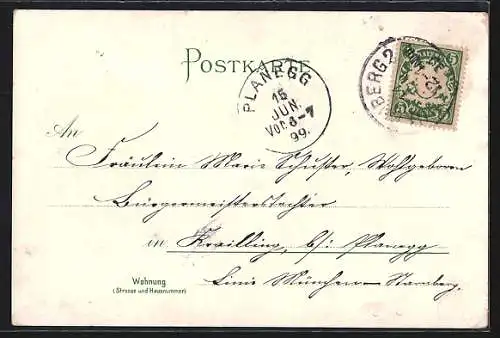 POSTKARTE
PLANEGG
15
JUN.
Vor. 6-7
99.
BERG 2
BAYERN
5
An
Fräulein Marie Schuster, Wohlgeboren
Bürgermeisterstochter
in Krailling, b/: Planegg
Linie München - Starnberg.
Wohnung
(Strasse und Hausnummer)